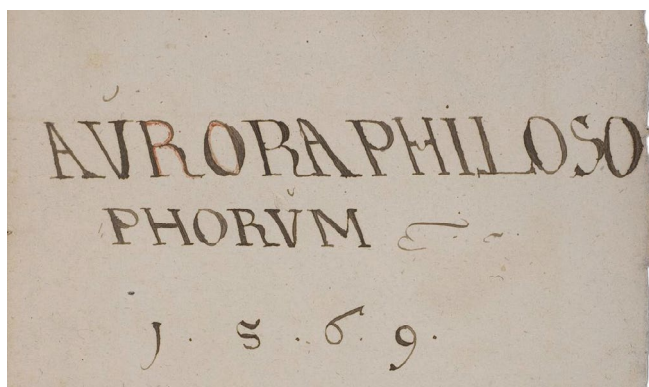 AVRORA PHILOSO
PHORVM
1.5.6.9.